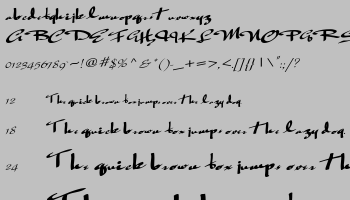 abcdefghijklmnopqrstuvwxyz
ABCDEFGHIJKLMNOPQRS
0123456789~!@#$%^&*()-_+=>,<.[]{}|\":;/?
12 The quick brown fox jumps over the lazy dog
18 The quick brown fox jumps over the lazy dog
24 The quick brown fox jumps over th